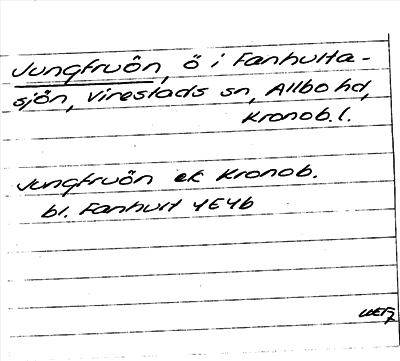 Jungfruön, ö i Fanhulta-
sjön, Virestads sn, Allbo hd,
Kronob. l.
Jungfruön ek Kronob.
bl. Fanhult 4E4b